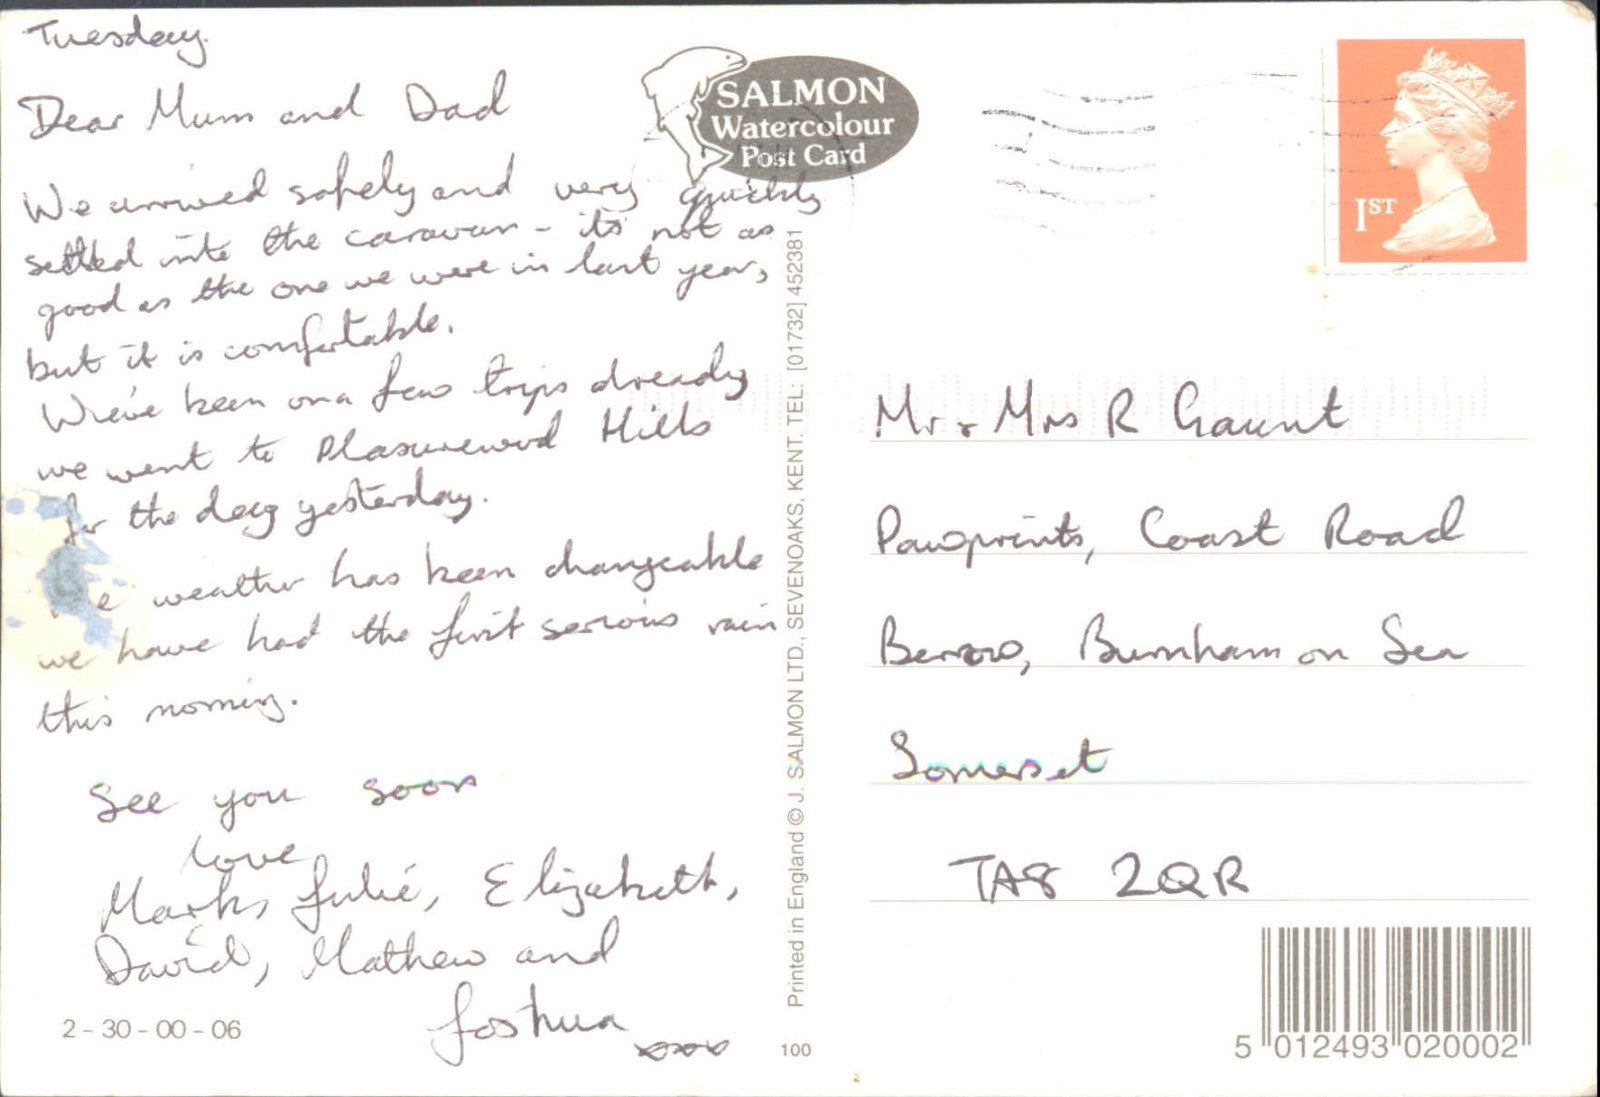 Tuesday.
Dear Mum and Dad
We arrived safely and very quickly
settled into the caravan - its not as
good as the one we were in last year,
but it is comfortable.
We've been on a few trips already
we went to Pleasurewood Hills
for the day yesterday.
The weather has been changeable
we have had the first serious rain
this morning.
See you soon
love
Mark, Julie, Elizabeth,
David, Mathew and
Joshua
2 - 30 - 00 - 06
SALMON
Watercolour
Post Card
Printed in England © J. SALMON LTD., SEVENOAKS, KENT. TEL: [01732] 452381
100
1ST
Mr & Mrs R Gaunt
Pawprints, Coast Road
Berrow, Burnham on Sea
Somerset
TA8 2QR
5 012493 020002